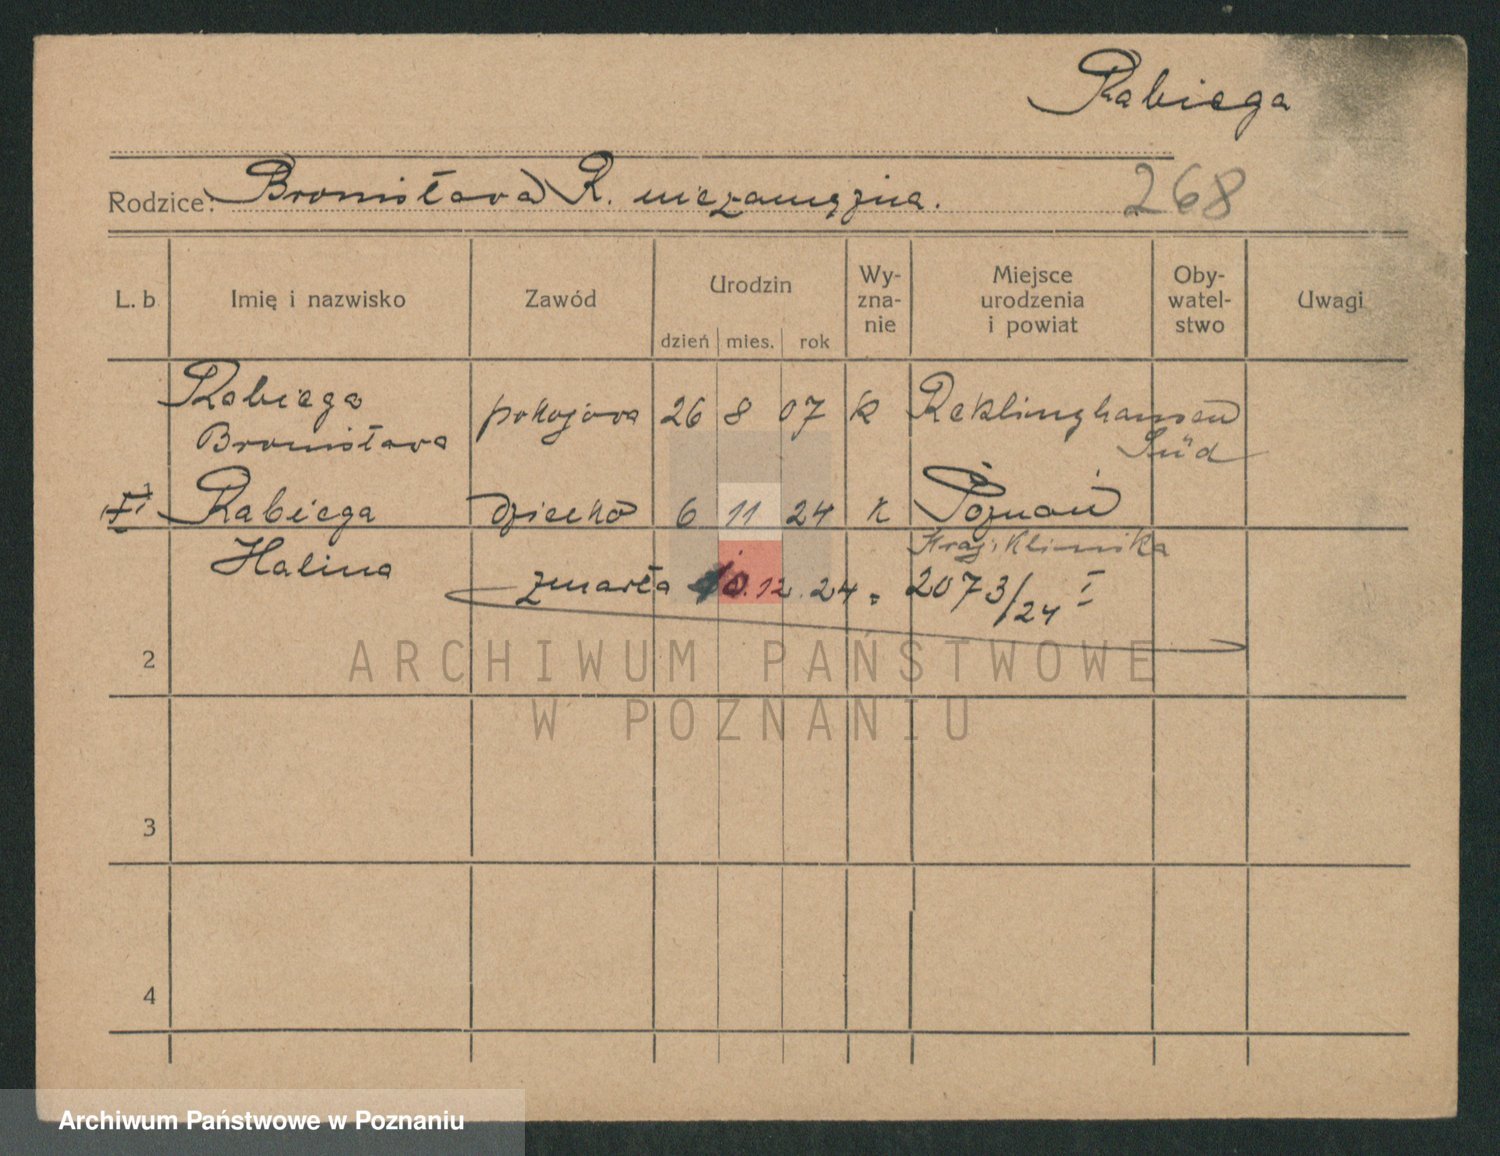 Rabiega
Rodzice: Bronisława R. niezamężna.
268
L. b Imię i nazwisko Zawód Urodzin Wy-zna-nie Miejsce urodzenia i powiat Oby-watel-stwo Uwagi
dzień mies. rok
Rabiega pokojowa 26 8 07 k Reklinghausen
Bronisława Süd
1 Rabiega dziecko 6 11 24 k Poznań
Halina Kraj. Klinika
zmarła 10.12.24 = 2073/24 I
2
3
4
ARCHIWUM PAŃSTWOWE
W POZNANIU
Archiwum Państwowe w Poznaniu